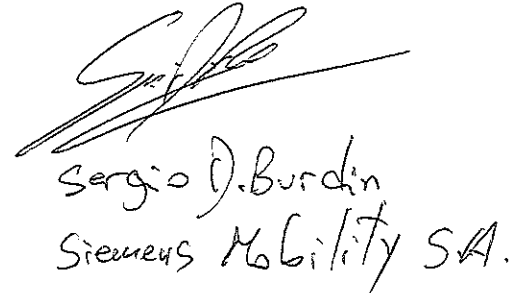 Sergio D. Burdin
Siemens Mobility S.A.